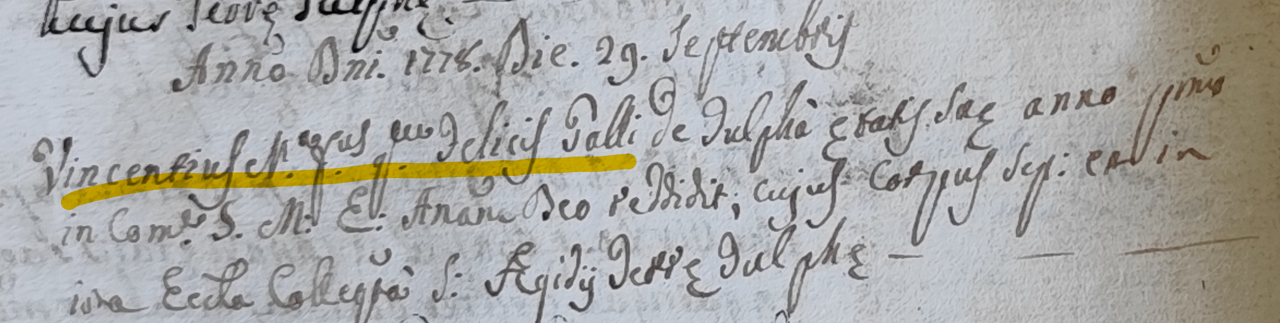 hujus Terrę Tulphę.
Anno Dni. 1778. Die. 29. Septembris
Vincentius M. f. q. Felicis Galli de Tulpha ętatis suę anno
in Com.e S. M. E. Anam Deo reddidit, cujus Corpus sep: est in
Eccla Collegta S: Ægidij Terrę Tulphę —